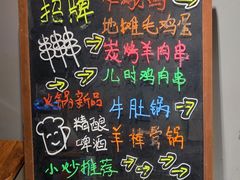 招牌
地摊毛鸡蛋
炭烤羊肉串
儿时鸡肉串
火锅新品
牛肚锅
精酿
啤酒
羊棒骨锅
小炒推荐